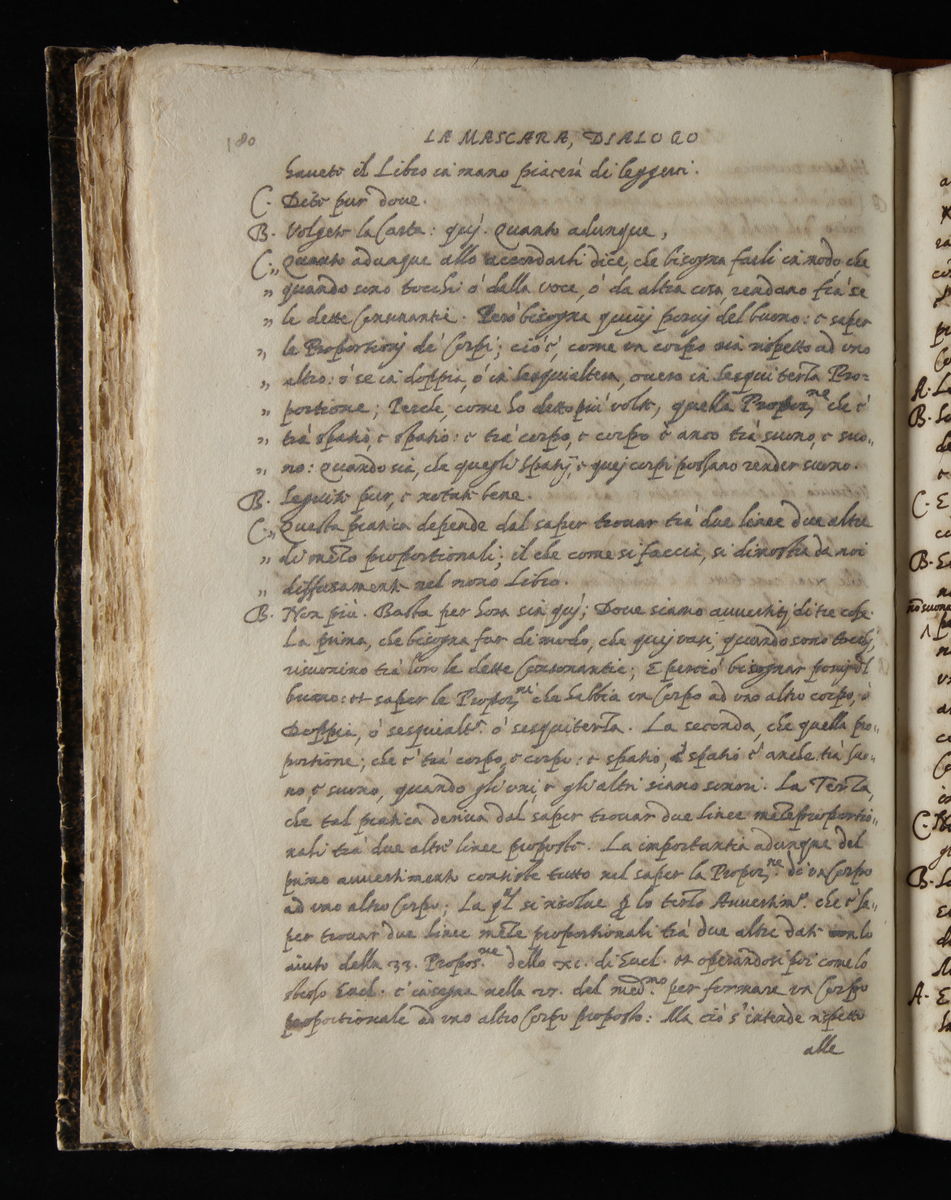 180
LA MASCARA, DIALOGO
haueto il Libro in mano piacerà di leggerui.
C. Dite pur doue.
B. Volgete la Carta: quì. Quanto adunque,
C. „ Quanto adunque allo accordarli dice, che bisogna farli in modo che
„ quando sino tocchi ò dalla voce, ò da altra cosa rendano frà se
„ le dette Consonantie. Però bisogna quiuj poruj del buono: et saper
„ le Proportionj de' Corpi; cio è, come un corpo sia rispetto ad uno
„ altro: ò se in doppia, ò in sesquialtera, ouero in sesquiterza Pro=
„ portione; Perche, come ho detto più volte, quella Propor.ne che è
„ trà spatio, e spatio: e trà corpo, e corpo è anco trà suono, e suo„
„ no: Quando sia, che quegli Spatij, e quej corpi possano render suono.
B. Seguite pur, e notate bene.
C. „ Questa pratica depende dal saper trouar trà due linee due altre
„ di mezo proportionali; il che come si faccia, si dimostra da noi
„ diffusamente nel nono Libro.
B. Non più. Basta per hora sin quì; Doue siamo auuertitj di tre cose.
La prima, che bisogna far di modo, che quej vasi, quando sono tocchi,
risuonino trà loro le dette Consonantie; E perciò bisognar poruj del
buono: et saper le Propor.ni che habbia un Corpo ad uno altro corpo, ò
Doppia, ò sesquialt.a ò sesquiterza. La seconda, che quella pro„
portione; che è trà corpo, e corpo: e spatio, e spatio è anche trà suo„
no, e suono, quando gli uni, e gli altri siano sonori. La Terza,
che tal pratica deriua dal saper trouar due linee meze proportio„
nali trà due altre linee proposte. La importantia adunque del
primo auuertimento consiste tutto nel saper la Propor.ne di un Corpo
ad uno altro Corpo; La ql si risolue p lo terzo Auuertim.o che è sa„
per trouar due linee meze proportionali trà due altre date con lo
aiuto della 33. Propos.ne dello XI. di Eucl. et operandosi poi come lo
stesso Eucl. c' insegna nella 27. del med.mo per formare un Corpo
proportionale ad uno altro Corpo proposto: Ma ciò s' intende rispetto
alle